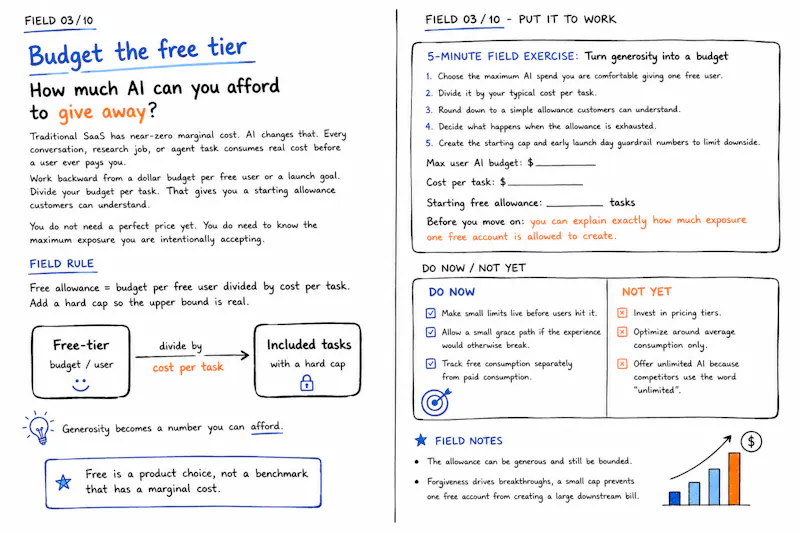 FIELD 03/10
Budget the free tier
How much AI can you afford
to give away?
Traditional SaaS has near-zero marginal cost. AI changes that. Every
conversation, research job, or agent task consumes real cost before
a user ever pays you.
Work backward from a dollar budget per free user or a launch goal.
Divide your budget per task. That gives you a starting allowance
customers can understand.
You do not need a perfect price yet. You do need to know the
maximum exposure you are intentionally accepting.
FIELD RULE
Free allowance = budget per free user divided by cost per task.
Add a hard cap so the upper bound is real.
Free-tier
budget / user
divide by
cost per task
Included tasks
with a hard cap
Generosity becomes a number you can afford.
Free is a product choice, not a benchmark
that has a marginal cost.
FIELD 03/10 - PUT IT TO WORK
5-MINUTE FIELD EXERCISE: Turn generosity into a budget
1. Choose the maximum AI spend you are comfortable giving one free user.
2. Divide it by your typical cost per task.
3. Round down to a simple allowance customers can understand.
4. Decide what happens when the allowance is exhausted.
5. Create the starting cap and early launch day guardrail numbers to limit downside.
Max user AI budget: $
Cost per task: $
Starting free allowance: tasks
Before you move on: you can explain exactly how much exposure
one free account is allowed to create.
DO NOW / NOT YET
DO NOW
Make small limits live before users hit it.
Allow a small grace path if the experience
would otherwise break.
Track free consumption separately
from paid consumption.
NOT YET
Invest in pricing tiers.
Optimize around average
consumption only.
Offer unlimited AI because
competitors use the word
"unlimited".
FIELD NOTES
• The allowance can be generous and still be bounded.
• Forgiveness drives breakthroughs, a small cap prevents
one free account from creating a large downstream bill.
$